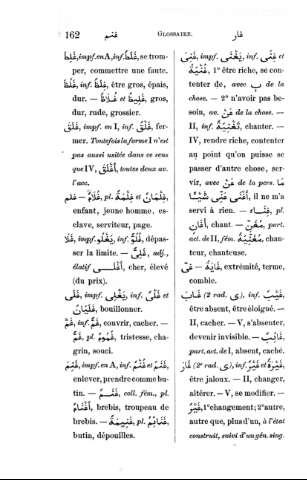 162 غنم GLOSSAIRE. غار
غَلِطَ, impf. en A, inf. غَلَطٌ, se tromper,
commettre une faute.
غَلُظَ, inf. غِلَظٌ, être gros, épais,
dur. — غَلِيظٌ et غُلَاظٌ, gros,
dur, rude, grossier.
غَلَقَ, impf. en I, inf. غَلْقٌ, fer-
mer. Toutefois la forme I n'est
pas aussi usitée dans ce sens
que IV, أَغْلَقَ, toutes deux av.
l'acc.
غلم — غُلَامٌ, pl. غِلْمَةٌ et غِلْمَانٌ,
enfant, jeune homme, es-
clave, serviteur, page.
غَلَا, impf. يَغْلُو, inf. غُلُوٌّ, dépas-
ser la limite. — adj.,
élatif أَغْلَى, cher, élevé
(du prix).
غَلَى, impf. يَغْلِي, inf. غَلْيٌ et
غَلَيَانٌ, bouillonner.
غَمَّ, inf. غَمٌّ, couvrir, cacher. —
غَمٌّ, pl. غُمُومٌ, tristesse, cha-
grin, souci.
غَنِمَ, impf. en A, inf. غُنْمٌ et غَنْمٌ,
enlever, prendre comme bu-
tin. — غَنَمٌ, coll. fém., pl.
أَغْنَامٌ, brebis, troupeau de
brebis. — غَنِيمَةٌ, pl. غَنَائِمُ,
butin, dépouilles.
غَنِيَ, impf. يَغْنَى, inf. غِنًى et
غُنْيَةٌ, 1° être riche, se con-
tenter de, avec بِ de la
chose. — 2° n'avoir pas be-
soin, av. عَنْ de la chose. —
II, inf. تَغْنِيَةٌ, chanter. —
IV, rendre riche, contenter
au point qu'on puisse se
passer d'autre chose, ser-
vir, avec عَنْ de la pers. مَا
أَغْنَى عَنِّي شَيْئًا, il ne m'a
servi à rien. — غِنَاءٌ, pl.
أَغَانٍ, chant. — مُغَنٍّ, part.
act. de II, fém. مُغَنِّيَةٌ, chan-
teur, chanteuse.
غَايَةٌ — غَىّ, extrémité, terme,
comble.
غَابَ (2 rad. ى), inf. غَيْبٌ,
être absent, être éloigné. —
II, cacher. — V, s'absenter,
devenir invisible. — غَائِبٌ,
part. act. de I, absent, caché.
غَارَ (2° rad. ى), inf. غَيْرٌ et غَيْرَةٌ,
être jaloux. — II, changer,
altérer. — V, se modifier. —
غَيْرٌ, 1° changement; 2° autre,
autre que, plus d'un, à l'état
construit, suivi d'un gén. sing.